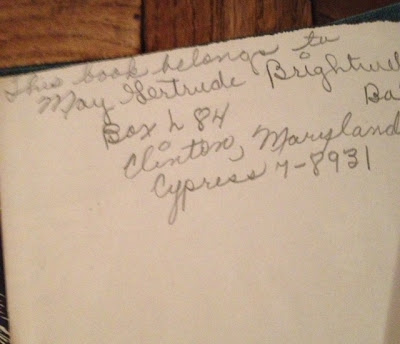 This book belongs to
May Gertrude Brightwell
Ba
Box L 84
Clinton, Maryland
Cypress 7-8931